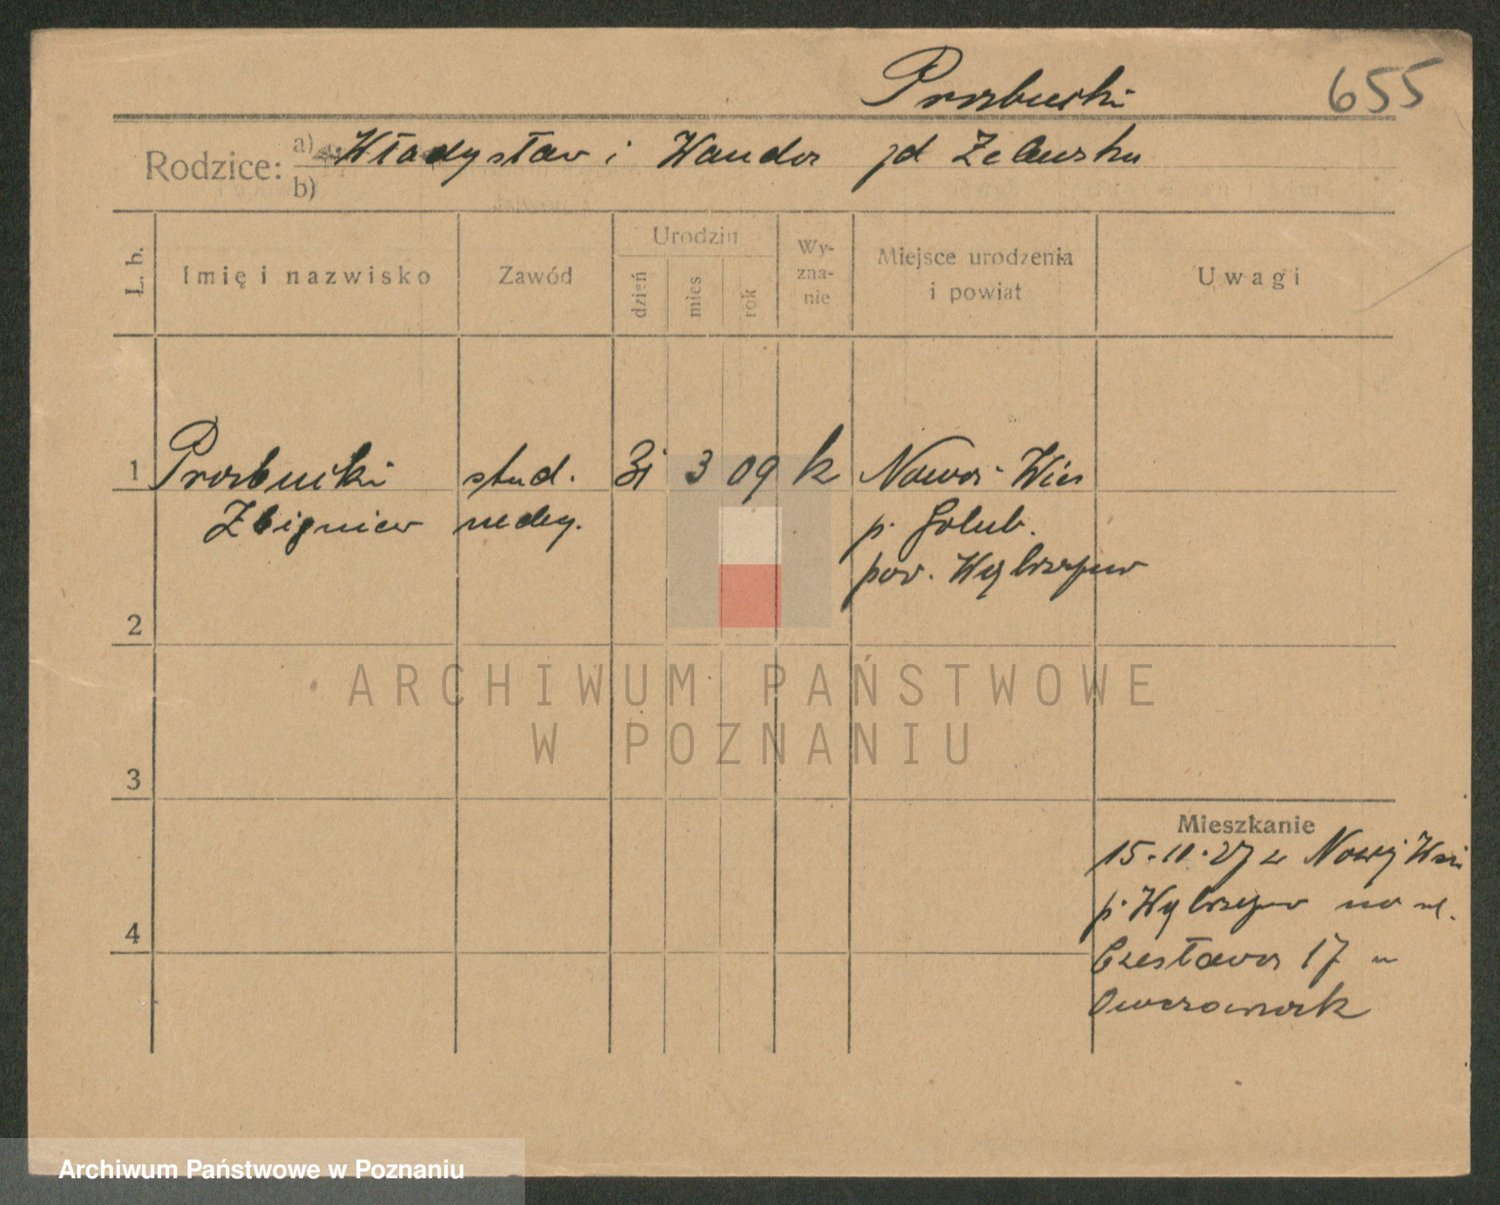 655
Rodzice: a) Władysław i Wanda zd Zelauska
b)
Ł. b.
Imię i nazwisko
Zawód
Urodzin
dzień
mies
rok
Wy-
zna-
nie
Miejsce urodzenia
i powiat
Uwagi
1 stud. 31 3 09 k Nowa Wieś
Zbigniew medy. p. Golub.
pow. Wąbrzeźno
2
3
4
ARCHIWUM PAŃSTWOWE
W POZNANIU
Mieszkanie
15.11.27 z Nowej Wsi
p. Wąbrzeźno na ul.
Czesława 17 u
Archiwum Państwowe w Poznaniu